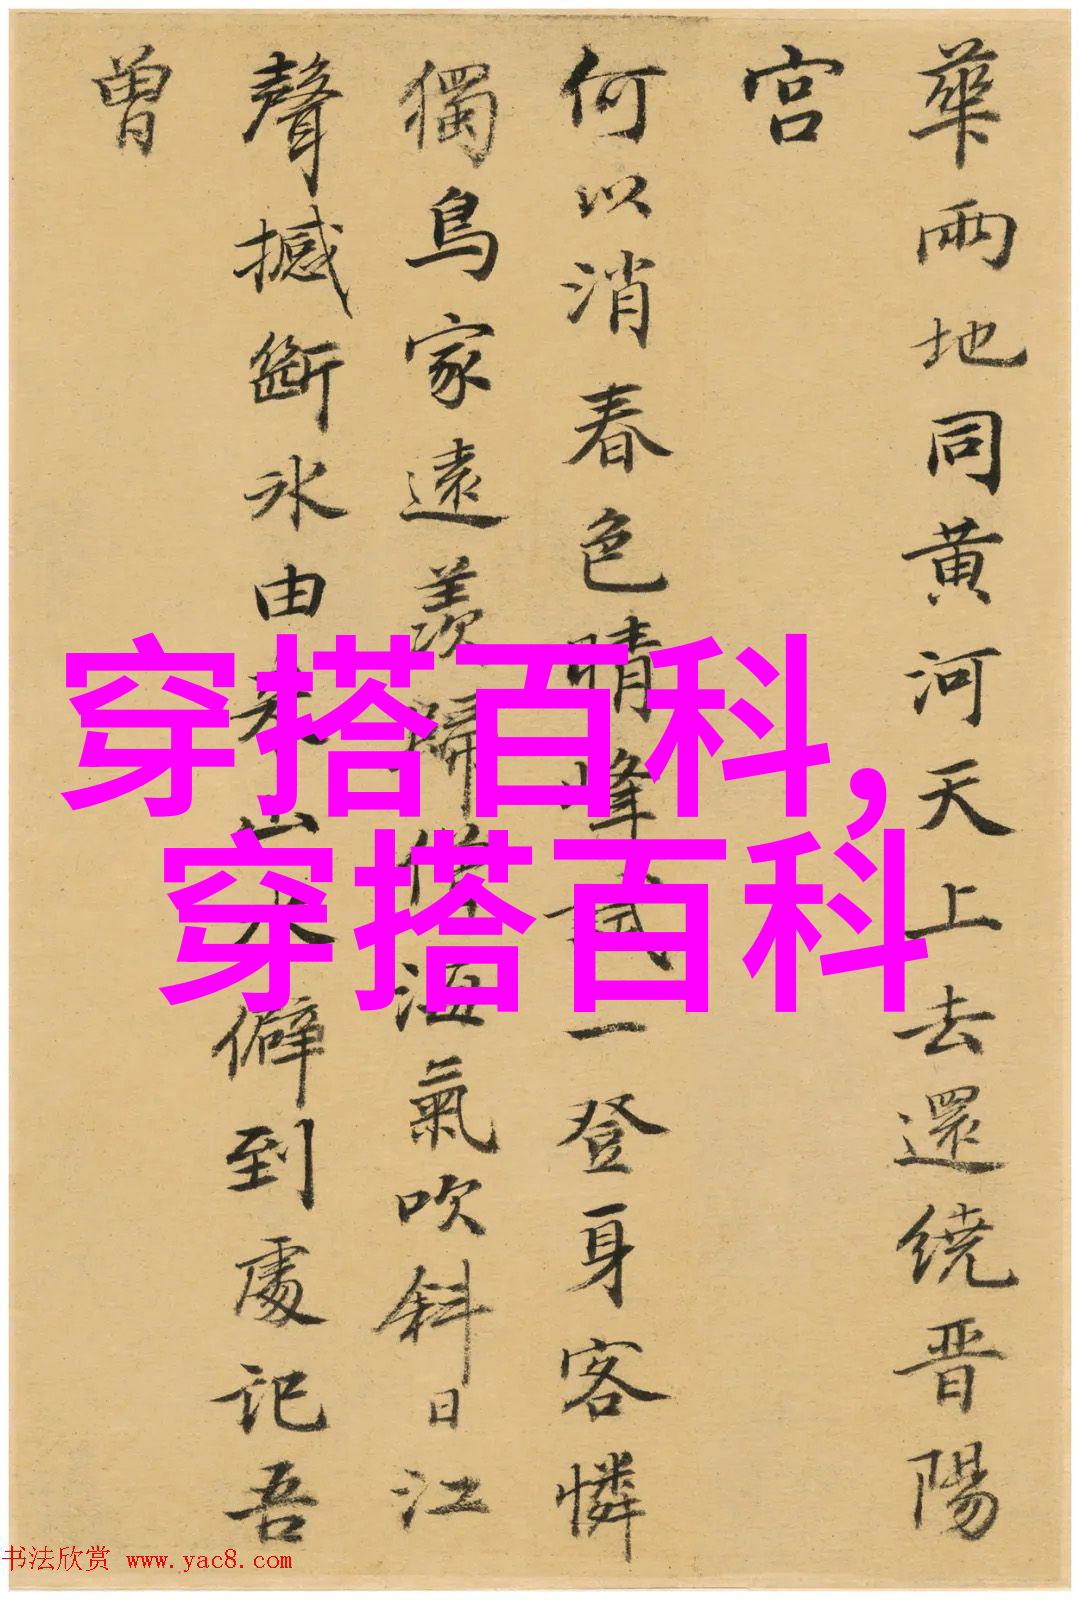 華兩地同黄河天上去還繞晋陽
宫
何以消春色晴峰試一登身客憐
獨鳥家遠羨歸僧海氣吹斜日江
聲撼斷冰由來山水僻到處記吾
曾
穿搭百科,
穿搭百科
书法欣赏 www.yac8.com